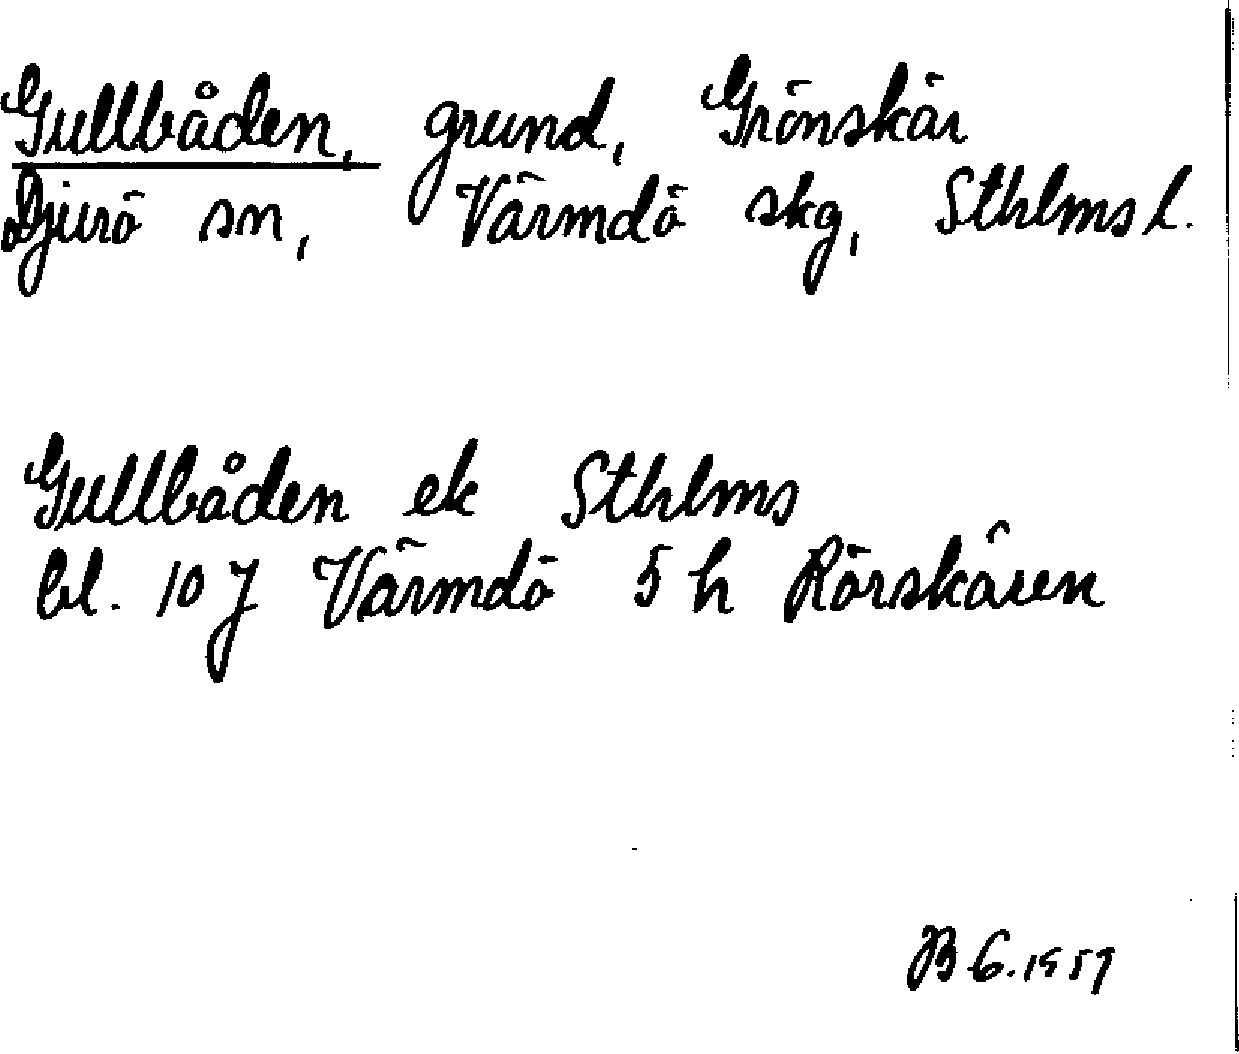 Gullbåden, grund, Grönskär
Djurö sn, Värmdö skg, Sthlms l.
Gullbåden ek Sthlms
bl. 10 J Värmdö 5 h Rörskären
BG. 1957